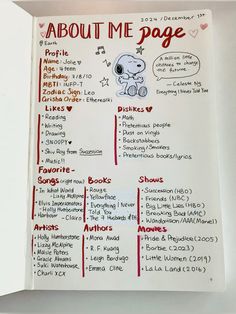 2024 / December 1st
ABOUT ME page
Earth
Profile
Name: Jolie
Age: 4teen
Birthday: 7/8/10
MBTI: IUFP-T
Zodiac Sign: Leo
Grisha Order: Etherealki
"A million little chances to change our futures."
— Celeste Ng
Everything I Never Told You
Likes
Reading
Writing
Drawing
SNOOPY
Shiv Roy from Succession
Music!!
Dislikes
Math
Pretentious people
Dust on vinyls
Backstabbers
Smoking / Smokers
Pretentious books/lyrics
Favorite-
Songs (right now)
In What World
- Lizzy McAlpine
Elvis Impersonators
- Holly Humberstone
Harbour - Clairo
Books
Rouge
Yellowface
Everything I Never
Told You
The 7 Husbands of EH
Shows
Succession (HBO)
Friends (NBC)
Big Little Lies (HBO)
Breaking Bad (AMC)
WandaVision/AAA (Marvel)
Artists
Holly Humberstone
Lizzy McAlpine
Maisie Peters
Gracie Abrams
Suki Waterhouse
Charli XCX
Authors
Mona Awad
R. F. Kuang
Leigh Bardugo
Emma Cline
Movies
Pride & Prejudice (2005)
Barbie (2023)
Little Women (2019)
La La Land (2016)